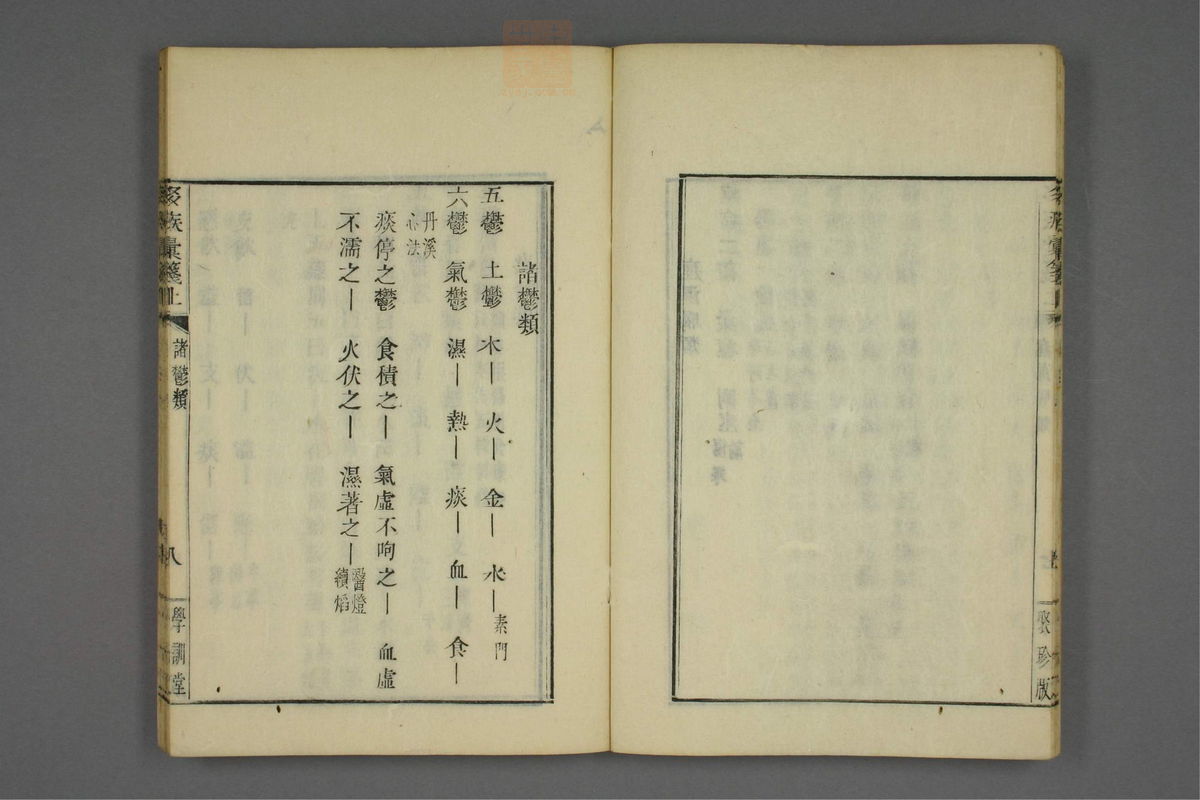 諸鬱類
五鬱　土鬱　木｜　火｜　金｜　水｜素門
六鬱　氣鬱　濕｜　熱｜　痰｜　血｜　食｜
丹溪
心法
痰停之鬱　食積之｜　氣虛不呴之｜　血虛
不濡之｜　火伏之｜　濕著之｜醫燈
續焰
彙箋上
諸鬱類
八
學訓堂
七
聚珍版